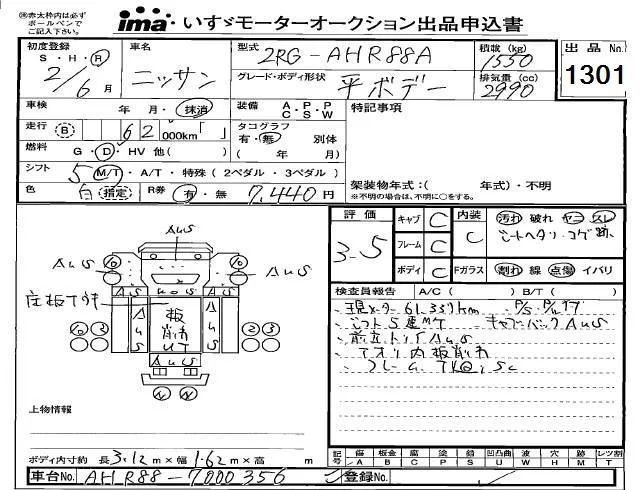 ㊟赤太枠内は必ず
ボールペンで
ご記入下さい。
ima いすゞモーターオークション出品申込書
初度登録 S・H・R 2/6月
車名 ニッサン
型式 2RG-AHR88A
積載(kg) 1550
出品No. 1301
グレード・ボディ形状 平ボデー
排気量(cc) 2990
車検 年 月・抹消
装備 A・P・P C S W
特記事項
走行 B 62 000km
タコグラフ 有・無 別体 (年 月)
燃料 G・D・HV 他( )
シフト 5 M/T・A/T・特殊(2ペダル・3ペダル)
架装物年式:( 年式)・不明
※不明の場合は、不明に○をする。
色 白 指定 R券 有・無 7,440円
評価 3.5
キャブ C
内装 C
汚れ 破れ ヤニ スレ
シートヘタリ・コゲ跡
フレーム C
ボディ C
Fガラス 割れ 線 点傷 イバリ
検査員報告 A/C( ) B/T( )
現メーター 61,339km P/S・P/W
シフト5速MT キャブバックAUS
前立トリイAUS
アオリ内板削れ
フレーム
AUS
AUS
AUS
AUS
AUS
AUS
AUS
板削れ
上物情報
ボディ内寸約 長3.12m×幅1.62m×高 m
記号 傷A 板金B 腐C 塗P 錆S 凹凸曲U 波W 穴H 跡M レンズ割T
車台No. AHR88-7000356
登録No.